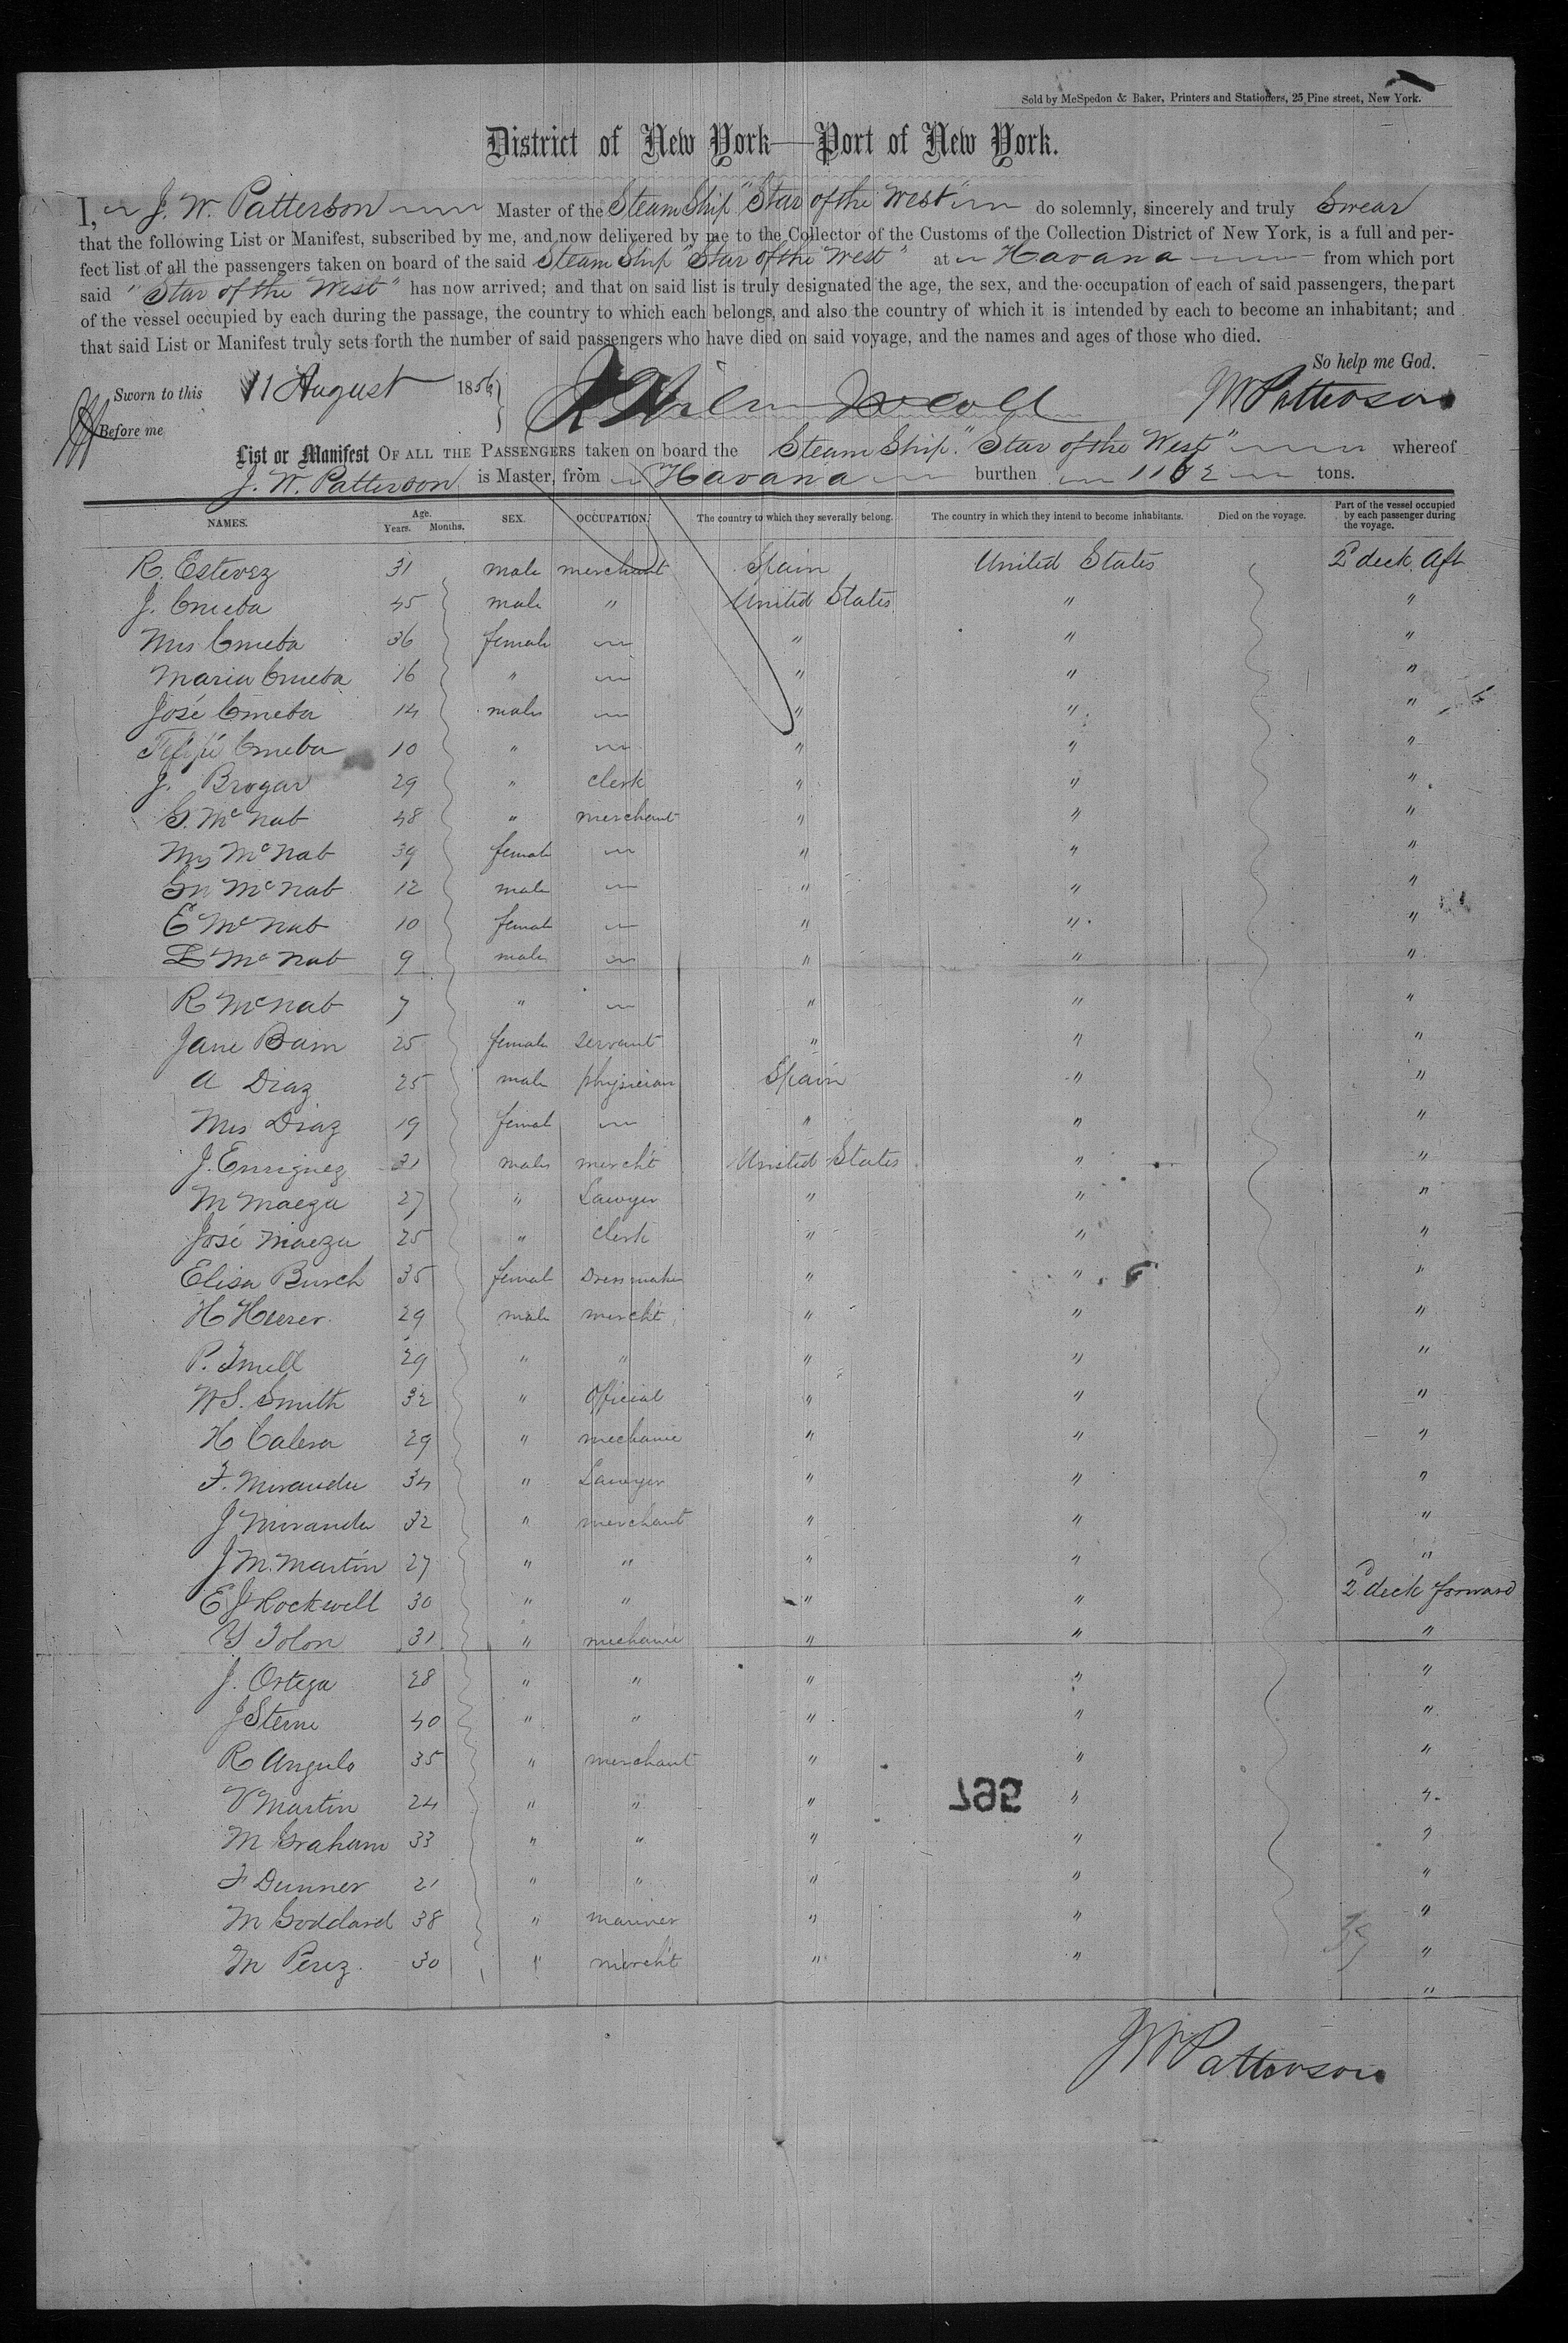 Sold by McSpedon & Baker, Printers and Stationers, 25 Pine street, New York.
District of New York—Port of New York.
I, J. W. Patterson Master of the Steam Ship "Star of the West" do solemnly, sincerely and truly Swear
that the following List or Manifest, subscribed by me, and now delivered by me to the Collector of the Customs of the Collection District of New York, is a full and per-
fect list of all the passengers taken on board of the said Steam Ship "Star of the West" at Havana from which port
said "Star of the West" has now arrived; and that on said list is truly designated the age, the sex, and the occupation of each of said passengers, the part
of the vessel occupied by each during the passage, the country to which each belongs, and also the country of which it is intended by each to become an inhabitant; and
that said List or Manifest truly sets forth the number of said passengers who have died on said voyage, and the names and ages of those who died.
So help me God.
Sworn to this 11 August 1856 JW Patterson
Before me
List or Manifest OF ALL THE PASSENGERS taken on board the Steam Ship. "Star of the West" whereof
J. W. Patterson is Master, from Havana burthen tons.
NAMES. Age. Years. Months. SEX. OCCUPATION. The country to which they severally belong. The country in which they intend to become inhabitants. Died on the voyage. Part of the vessel occupied by each passenger during the voyage.
R. Estevez 31 male merchant Spain United States 2d deck Aft
J. 45 male " United States " "
Mrs 36 female " " "
Maria 16 " " " "
José 14 male " " "
10 " " " "
J. Brogar 29 " clerk " " "
G. McNab 48 " merchant " " "
Mrs McNab 39 female " " "
McNab 12 male " " "
E McNab 10 female " " "
McNab 9 male " " "
R McNab 7 " " " "
Jane Bam 25 female servant " " "
A Diaz 25 male physician Spain " "
Mrs Diaz 19 female " " "
J. Enriquez 31 male mercht United States " "
M Maeza 27 " Lawyer " " "
José Maeza 25 " clerk " " "
Elisa Burch 35 female Dressmaker " " "
H 29 male mercht " " "
P. 29 " " " " "
W S. Smith 32 " Official " " "
H Calera 29 " mechanic " " "
F. Miranda 34 " Lawyer " " "
J Miranda 32 " merchant " " "
J M. Martin 27 " " " " "
E J Rockwell 30 " " " " 2d deck forward
Y Tolon 31 " mechanic " " "
J. Ortega 28 " " " " "
J Sterne 40 " " " " "
R Angulo 35 " merchant " " "
V Martin 24 " " " " "
M Graham 33 " " " " "
F Dunner 21 " " " " "
M Goddard 38 " mariner " " "
M Perez 30 " mercht " " "
"
795
JW Patterson